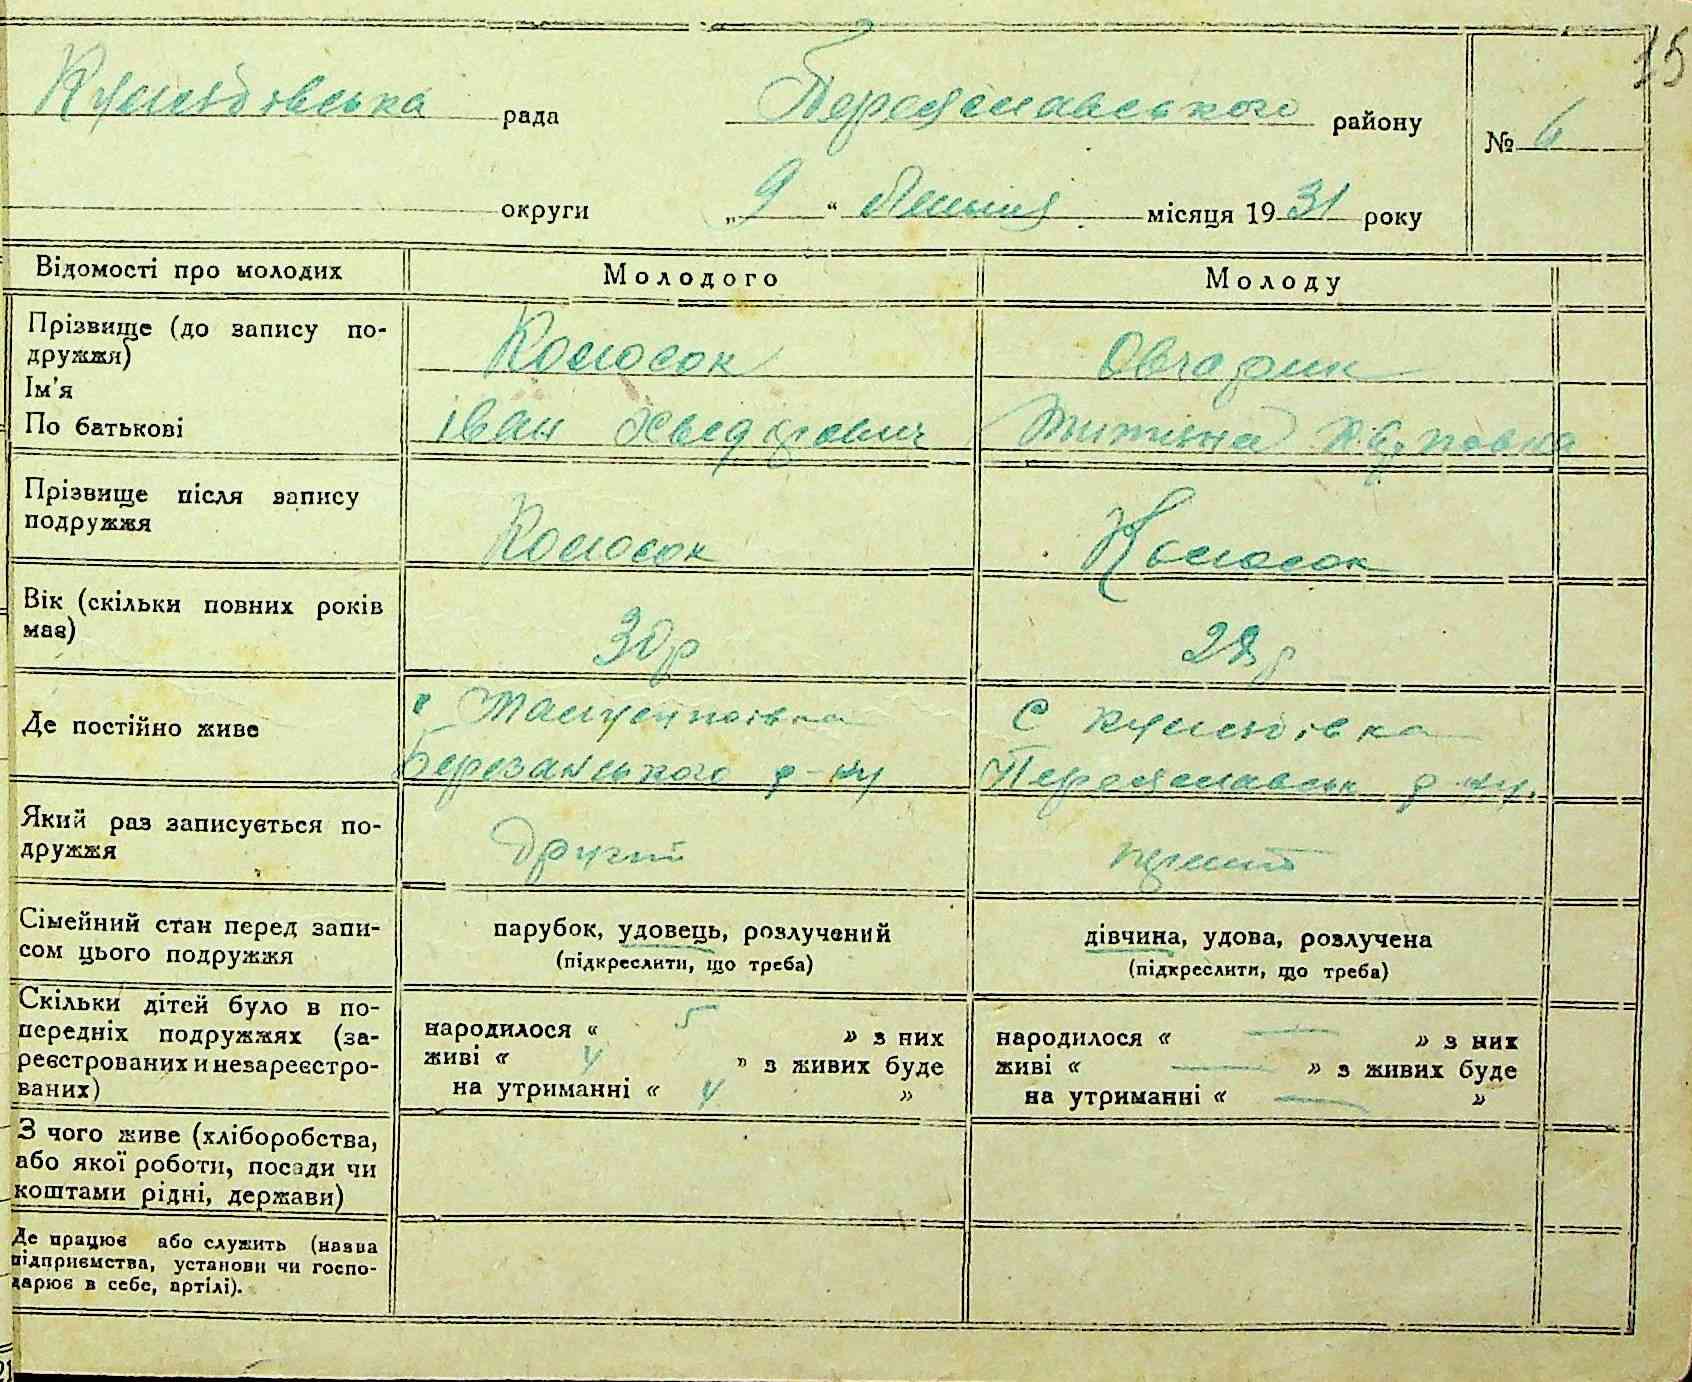 15
Кулябівська рада Переяславського району № 6
округи „ 9 “ Липня місяця 1931 року
Відомості про молодих Молодого Молоду
Прізвище (до запису по- Колосок Овчарик
дружжя)
Ім'я
По батькові Іван Хведорович
Прізвище після запису
подружжя Колосок Колосок
Вік (скільки повних років
має) 30р
Де постійно живе с Кулябівка
Березанського р-ну Переяславськ р-ну.
Який раз записується по-
дружжя другий перший
Сімейний стан перед запи- парубок, удовець, розлучений дівчина, удова, розлучена
сом цього подружжя (підкреслити, що треба) (підкреслити, що треба)
Скільки дітей було в по-
передніх подружжях (за- народилося « 5 » з них народилося « — » з них
реєстрованих и незареєстро- живі « 4 » з живих буде живі « — » з живих буде
ваних) на утриманні « 4 » на утриманні « — »
З чого живе (хліборобства,
або якої роботи, посади чи
коштами рідні, держави)
Де працює або служить (назва
підприємства, установи чи госпо-
дарює в себе, артілі).